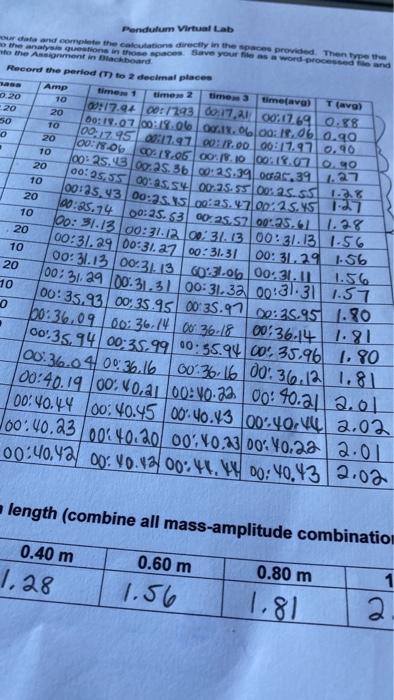 Pendulum Virtual Lab
our data and complete the calculations directly in the spaces provided. Then type the
o the analysis questions in those spaces. Save your file as a word-processed file and
nto the Assignment in Blackboard.
Record the period (T) to 2 decimal places
mass Amp time 1 time 2 time 3 time(avg) T (avg)
0.20 10 00:17.94 00:17.93 00:17.21 00:17.69 0.88
.20 20 00:18.07 00:18.06 00:18.06 00:18.06 0.90
50 10 00:17.95 00:17.97 00:18.00 00:17.97 0.90
0 20 00:18.06 00:18.05 00:18.10 00:18.07 0.90
10 00:25.43 00:25.36 00:25.39 00:25.39 1.27
20 00:25.55 00:25.54 00:25.55 00:25.55 1.28
10 00:25.43 00:25.45 00:25.47 00:25.45 1.27
20 00:25.74 00:25.53 00:25.57 00:25.61 1.28
10 00:31.13 00:31.12 00:31.13 00:31.13 1.56
20 00:31.29 00:31.27 00:31.31 00:31.29 1.56
10 00:31.13 00:31.13 00:31.06 00:31.11 1.56
20 00:31.29 00:31.31 00:31.32 00:31.31 1.57
10 00:35.93 00:35.95 00:35.97 00:35.95 1.80
0 00:36.09 00:36.14 00:36.18 00:36.14 1.81
00:35.94 00:35.99 00:35.94 00:35.96 1.80
00:36.04 00:36.16 00:36.16 00:36.12 1.81
00:40.19 00:40.21 00:40.22 00:40.21 2.01
00:40.44 00:40.45 00:40.43 00:40.44 2.02
00:40.23 00:40.20 00:40.23 00:40.22 2.01
00:40.42 00:40.42 00:44.44 00:40.43 2.02
length (combine all mass-amplitude combination
0.40 m 0.60 m 0.80 m 1
1.28 1.56 1.81 2.